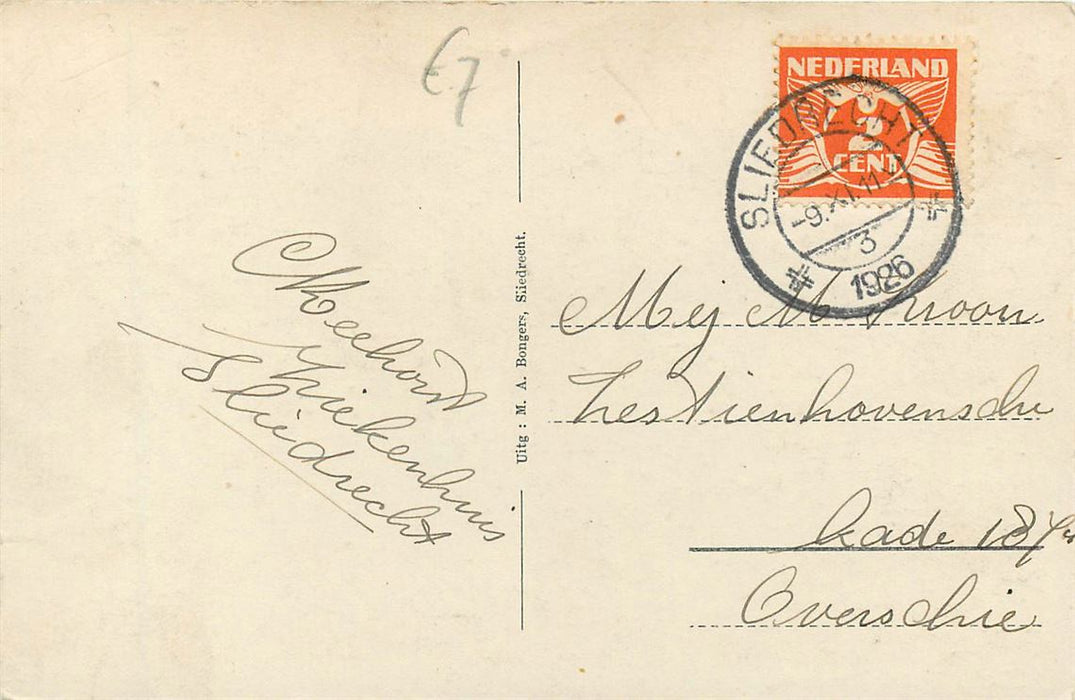 €7
NEDERLAND
2
CENT
SLIEDRECHT
-9.XI.11
3
1926
Ziekenhuis
Sliedrecht
Uitg : M. A. Bongers, Sliedrecht.
Mej M Kroon
Zestienhovensche
kade 187
Overschie